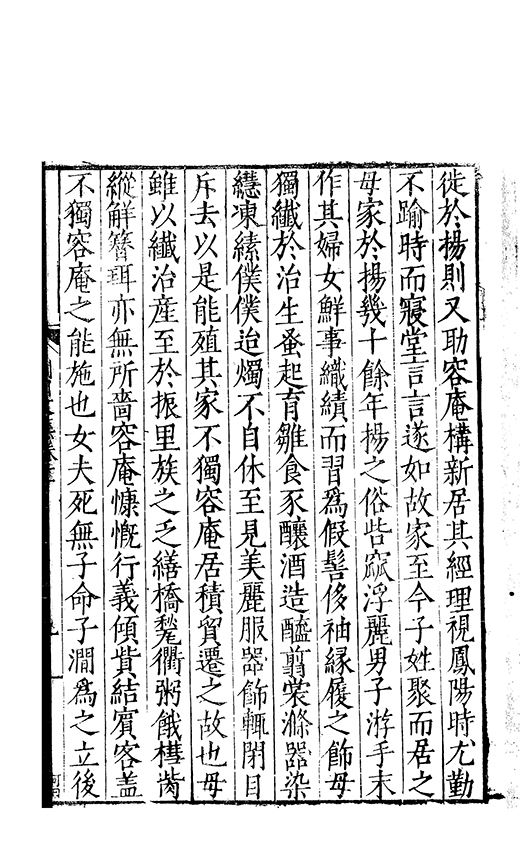 徙於揚則又助容庵構新居其經理視鳳陽時尤勤
不踰時而寢堂言言遂如故家至今子姓聚而居之
母家於揚幾十餘年揚之俗呰窳浮麗男子游手末
作其婦女鮮事織績而習爲假髻侈袖緣履之飾母
獨纖於治生蚤起育雛食豕釀酒造醯翦裳滌器染
繐凍縤僕僕迨燭不自休至見美麗服器飾輒閉目
斥去以是能殖其家不獨容庵居積貿遷之故也母
雖以纖治產至於振里族之乏繕橋甃衢粥餓槥胔
縱解簪珥亦無所嗇容庵慷慨行義傾貲結賓客蓋
不獨容庵之能施也女夫死無子命子澗爲之立後